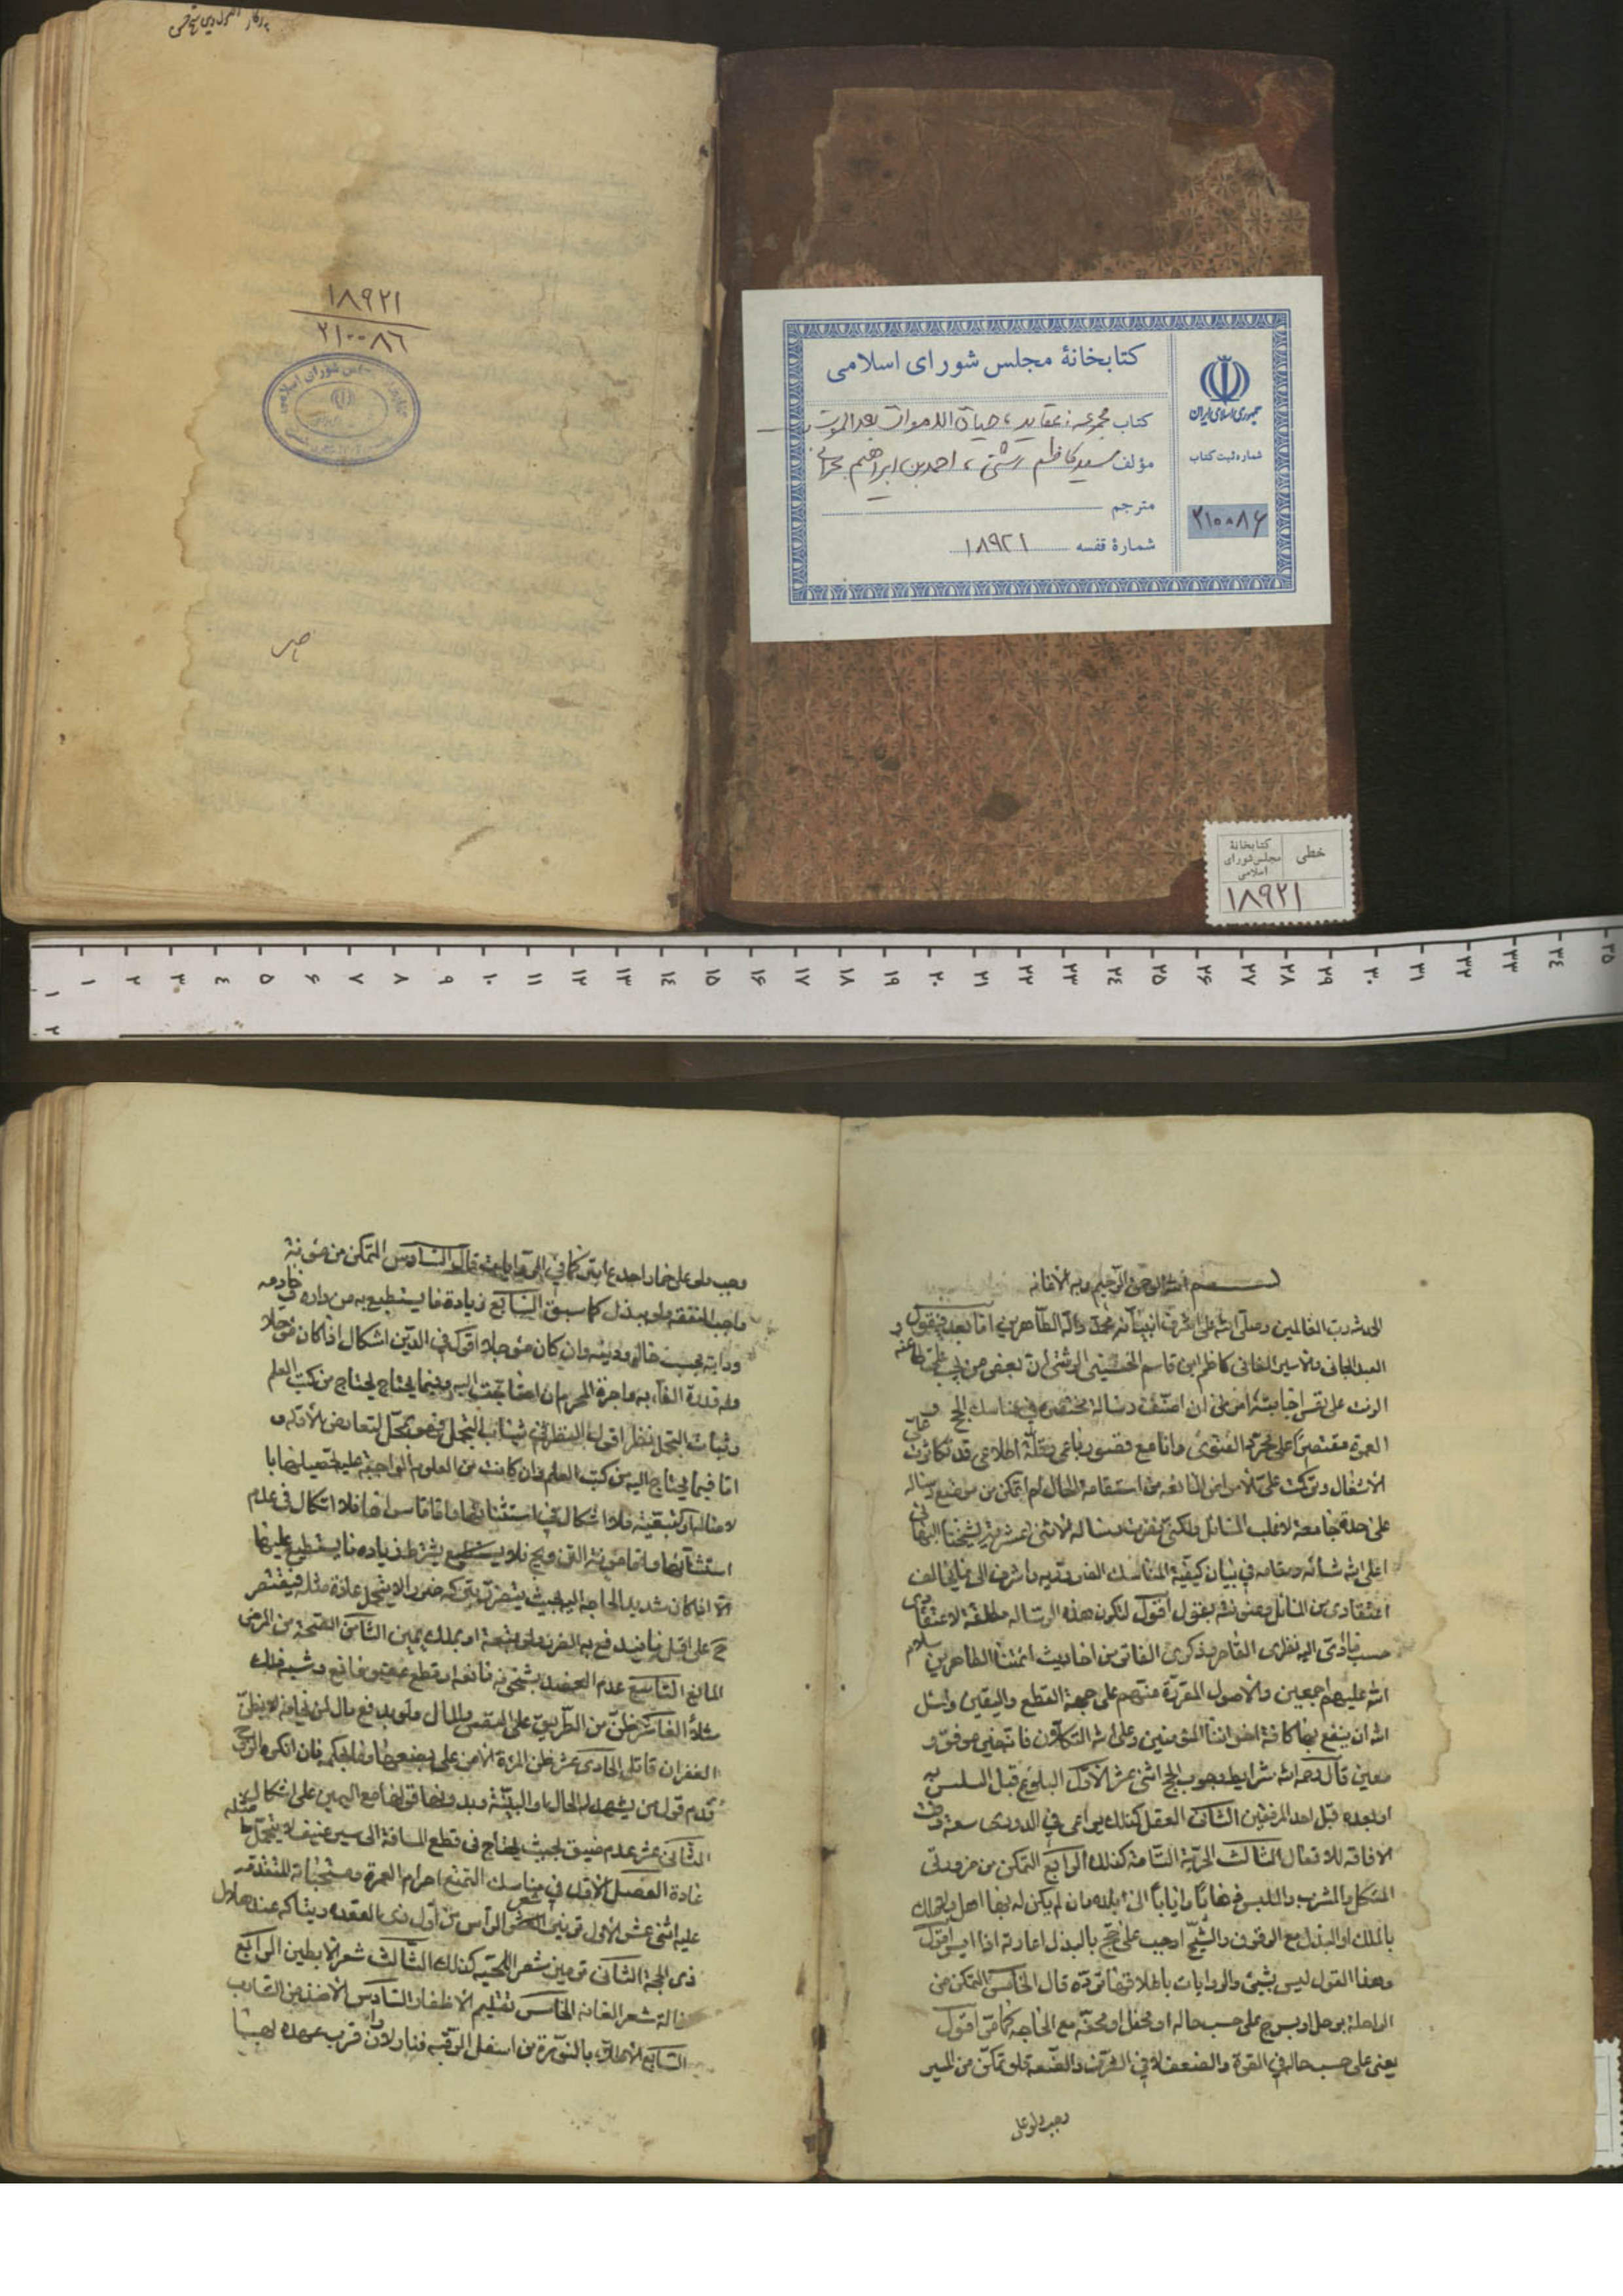 ۱۸۹۲۱
۲۱۰۰۸۶
کتابخانهٔ مجلس شورای اسلامی
جمهوری اسلامی ایران
کتاب مجموعه: عقاید، حیاة الاموات بعد الموت
شماره ثبت کتاب
مؤلف سید کاظم رشتی، احمد بن ابراهیم بحرانی
مترجم
۲۱۰۰۸۶
شمارهٔ قفسه ۱۸۹۲۱
خطی
کتابخانهٔ
مجلس شورای
اسلامی
۱۸۹۲۱
۱ ۲ ۳ ۴ ۵ ۶ ۷ ۸ ۹ ۱۰ ۱۱ ۱۲ ۱۳ ۱۴ ۱۵ ۱۶ ۱۷ ۱۸ ۱۹ ۲۰ ۲۱ ۲۲ ۲۳ ۲۴ ۲۵ ۲۶ ۲۷ ۲۸ ۲۹ ۳۰ ۳۱ ۳۲ ۳۳ ۳۴ ۳۵
بسم الله الرحمن الرحيم وبه الاعانه
الحمد لله رب العالمين وصلى الله على اشرف انبيائه محمد وآله الطاهرين اما بعد فيقول
العبد الجانى والاسير الفانى كاظم ابن قاسم الحسينى الرشتى ان بعض من يجب على طاعته
الزمت على نفسى اجابته امرنى ان اصنف رسالة مختصرة فى مناسك الحج و
العمرة مقتصرا على مجرد الفتوى وانا مع قصور باعى وقلة اطلاعى قد تكاثرت على
الاشغال وتركت على الامراض المانعه من استقامة الحال لم اتمكن من وضع رسالة
على حدة جامعة لاغلب المسائل ولكنى رسالة الاثنى عشرية لشيخنا البهائى
اعلى الله شانه ومقامه فى بيان كيفية المناسك الضرورية واشرت الى ما يخالف
اعتقادى من المسائل وعنونته بقول اقول لتكون هذه الرسالة مطابقة لاعتقادى
حسب ما ادى اليه نظرى القاصر وفكرى الفاتر من احاديث ائمتنا الطاهرين سلام
الله عليهم اجمعين والاصول المقررة عنهم على جهة القطع واليقين واسئل
الله ان ينفع بها كافة اخواننا المؤمنين وعلى الله التكلان فانه خير موفق و
معين قال رحمه الله شرايط وجوب الحج اثنى عشر الاول البلوغ قبل التلبس به
او بعده قبل احد الموقفين الثانى العقل كذلك يراعى فى الدورى سعة وقت
الافاقة للافعال الثالث الحرية التامة كذلك الرابع التمكن من ضرورتى
المأكل والمشرب والملبس ذهابا وايابا الى بلده وان لم يكن له بها اهل يتملك
بالملك او البذل مع الوثوق والشيخ اوجب على من حج بالبذل اعادته اذا ايسر اقول
وهذا القول ليس بشيئ والروايات باطلاقها ترده قال الخامس التمكن من
الراحلة برحل او سرج على حسب حاله او محمل او محفة مع الحاجة كما مر اقول
يعنى على حسب حاله فى القوة والضعف لا فى الشرف والضعة فلو تمكن من المسير
وجب ولو على
وجب ولو على حمار اجدع ابتر كما فى الروايات قال السادس التمكن من مؤنة
واجبى النفقة ولو ببذل كما سبق السابع زيادة ما يستطيع به من داره وخادمه
ودابته بحسب حاله ودينه وان كان مؤجلا اقول فى الدين اشكال اذا كان مؤجلا
وله قدرة الفاء به واجرة المحرم ان احتاجت اليه وفيما يحتاج من كتب العلم
وثياب التجمل نظر اقول النظر فى ثياب التجمل فى محل لتعارض الادلة و
اما فيما يحتاج اليه من كتب العلم فان كانت من العلوم الواجبة عليه تحصيلها
فلا اشكال فى استثنائها واما ما سواها فلا اشكال فى عدم
استثنائها واما مؤنة التزويج فلا يشترط زيادة ما يستطيع عليها
الا اذا كان شديد الحاجة اليه بحيث يتضرر بتركه ضررا لا يتحمل عادة مثله فيقتصر
ح على اقل ما يندفع به الضرر ولو بمتعة او بملك يمين الثامن الصحة من المرض
المانع التاسع عدم العضب بشيخوخة مانعة او قطع عضو مانع وشبه ذلك
مثلا العاشر خلو الطريق على النفس والمال ولو بدفع مال
الحادى عشر ظن المرئة الامن على بضعها فان انكره الزوج
قدم قول من يشهد له الحال او البينة وبدونها قولها مع اليمين على اشكال
الثانى عشر عدم ضيق بحيث يحتاج فى قطع المسافة الى سير عنيف لا يتحمل مثله
عادة الفصل الاول فى مناسك التمتع احرام العمرة ومستحباته المتقدمة
عليه اثنى عشر الاول توفير شعر الراس من اول ذى القعدة ويتاكد عند هلال
ذى الحجة الثانى توفير شعر اللحية كذلك الثالث شعر الابطين الرابع
ازالة شعر العانة الخامس تقليم الاظفار السادس الاخذ من الشارب
السابع الاطلاء بالنورة من اسفل الرقبة فنازلا وان قرب عهده بها